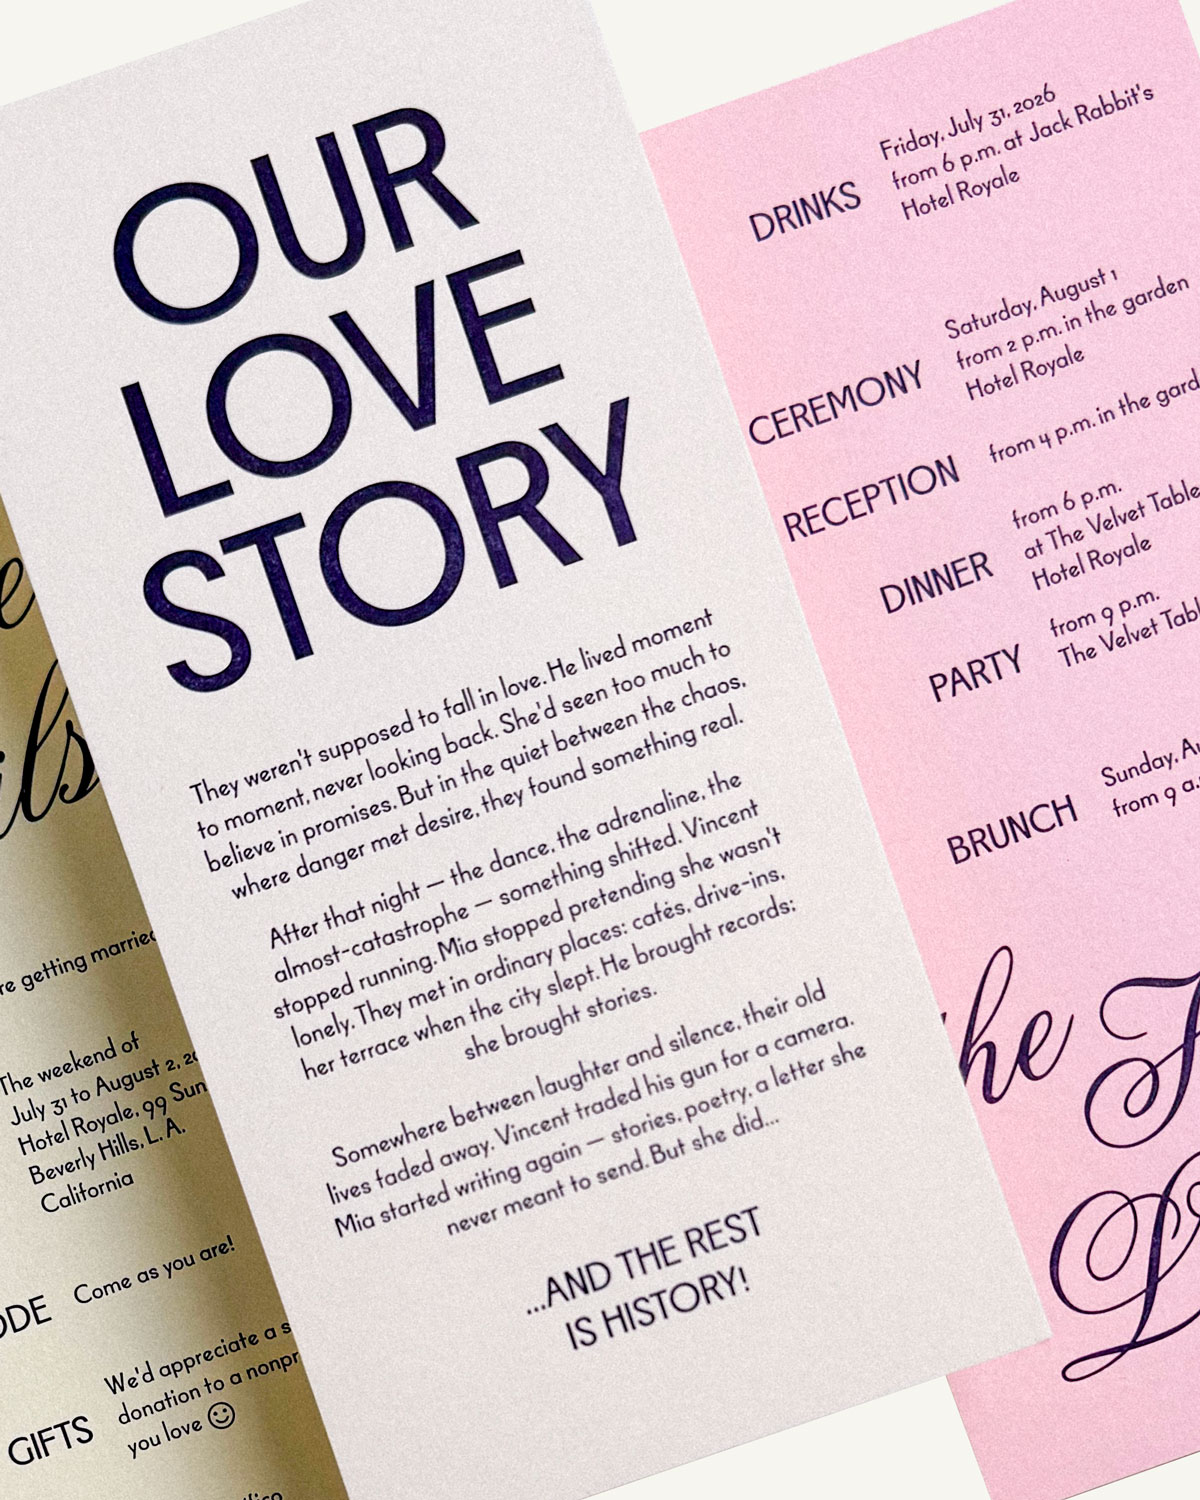 OUR
LOVE
STORY
They weren't supposed to fall in love. He lived moment
to moment, never looking back. She'd seen too much to
believe in promises. But in the quiet between the chaos,
where danger met desire, they found something real.
After that night — the dance, the adrenaline, the
almost-catastrophe — something shifted. Vincent
stopped running. Mia stopped pretending she wasn't
lonely. They met in ordinary places: cafés, drive-ins,
her terrace when the city slept. He brought records;
she brought stories.
Somewhere between laughter and silence, their old
lives faded away. Vincent traded his gun for a camera.
Mia started writing again — stories, poetry, a letter she
never meant to send. But she did...
...AND THE REST
IS HISTORY!
DRINKS
Friday, July 31, 2026
from 6 p.m. at Jack Rabbit's
Hotel Royale
CEREMONY
Saturday, August 1
from 2 p.m. in the garden
Hotel Royale
RECEPTION
from 4 p.m. in the
DINNER
from 6 p.m.
at The Velvet Table
Hotel Royale
PARTY
from 9 p.m.
The Velvet
BRUNCH
Sunday,
from 9
he
getting married
The weekend of
July 31 to August 2,
Hotel Royale, 99
Beverly Hills, L.A.
California
Come as you are!
GIFTS
We'd appreciate a
donation to a
you love ☺